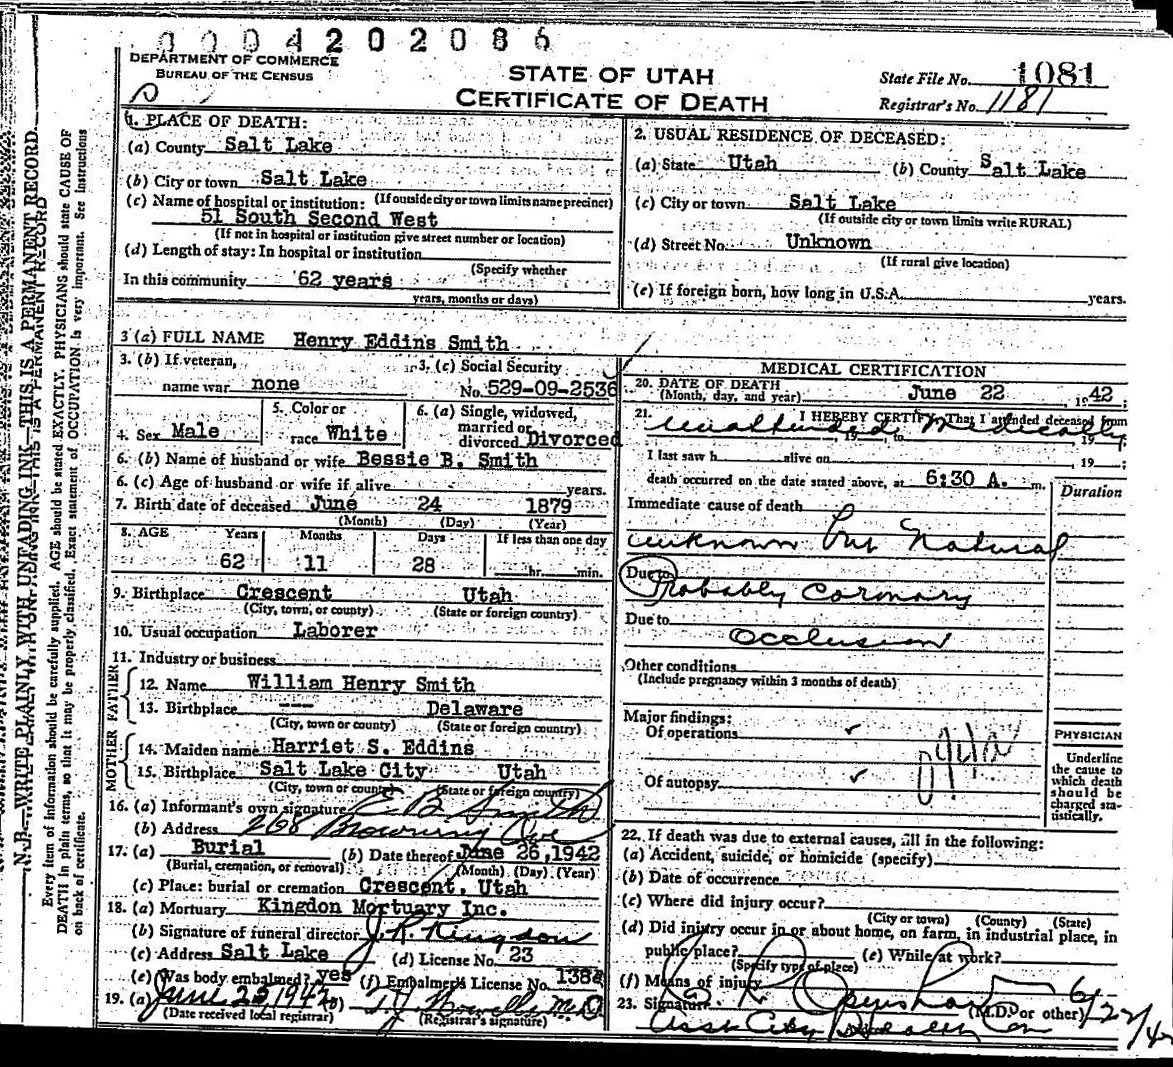 0004202086
DEPARTMENT OF COMMERCE
BUREAU OF THE CENSUS
STATE OF UTAH
CERTIFICATE OF DEATH
State File No. 1081
Registrar's No. 1181
N.B.—WRITE PLAINLY, WITH UNFADING INK—THIS IS A PERMANENT RECORD
Every item of information should be carefully supplied. AGE should be stated EXACTLY. PHYSICIANS should state CAUSE OF
DEATH in plain terms, so that it may be properly classified. Exact statement of OCCUPATION is very important. See instructions
on back of certificate.
1. PLACE OF DEATH:
(a) County Salt Lake
(b) City or town Salt Lake
(If outside city or town limits name precinct)
(c) Name of hospital or institution:
51 South Second West
(If not in hospital or institution give street number or location)
(d) Length of stay: In hospital or institution
(Specify whether
In this community 62 years
years, months or days)
2. USUAL RESIDENCE OF DECEASED:
(a) State Utah (b) County Salt Lake
(c) City or town Salt Lake
(If outside city or town limits write RURAL)
(d) Street No. Unknown
(If rural give location)
(e) If foreign born, how long in U.S.A. years.
3 (a) FULL NAME Henry Eddins Smith
3. (b) If veteran,
name war none
3. (c) Social Security
No. 529-09-2536
4. Sex Male
5. Color or
race White
6. (a) Single, widowed,
married or
divorced Divorced
6. (b) Name of husband or wife Bessie B. Smith
6. (c) Age of husband or wife if alive years.
7. Birth date of deceased June 24 1879
(Month) (Day) (Year)
8. AGE Years Months Days If less than one day
62 11 28 hr. min.
9. Birthplace Crescent Utah
(City, town, or county) (State or foreign country)
10. Usual occupation Laborer
11. Industry or business
FATHER
12. Name William Henry Smith
13. Birthplace --- Delaware
(City, town or county) (State or foreign country)
MOTHER
14. Maiden name Harriet S. Eddins
15. Birthplace Salt Lake City Utah
(City, town or county) (State or foreign country)
16. (a) Informant's own signature E B Smith
(b) Address 268 Browning Ave
17. (a) Burial (b) Date thereof June 26, 1942
(Burial, cremation, or removal) (Month) (Day) (Year)
(c) Place: burial or cremation Crescent, Utah
18. (a) Mortuary Kingdon Mortuary Inc.
(b) Signature of funeral director J. R. Kingdon
(c) Address Salt Lake (d) License No. 23
(e) Was body embalmed? yes (f) Embalmer's License No.
19. (a) June 25 1942 (b)
(Date received local registrar) (Registrar's signature)
MEDICAL CERTIFICATION
20. DATE OF DEATH
(Month, day, and year) June 22, 1942;
21. I HEREBY CERTIFY, That I attended deceased from
unattended Medically
19 to 19
I last saw h alive on , 19 ;
death occurred on the date stated above, at 6:30 A. m.
Duration
Immediate cause of death
unknown but Natural
Due to Probably Coronary
Due to
Occlusion
Other conditions
(Include pregnancy within 3 months of death)
Major findings:
Of operations ✓
Of autopsy ✓
094a
PHYSICIAN
Underline
the cause to
which death
should be
charged sta-
tistically.
22. If death was due to external causes, fill in the following:
(a) Accident, suicide, or homicide (specify)
(b) Date of occurrence
(c) Where did injury occur?
(City or town) (County) (State)
(d) Did injury occur in or about home, on farm, in industrial place, in
public place? (e) While at work?
(Specify type of place)
(f) Means of injury
23. Signature Openshaw (M.D. or other) 6/22/42
Asst City Health Com